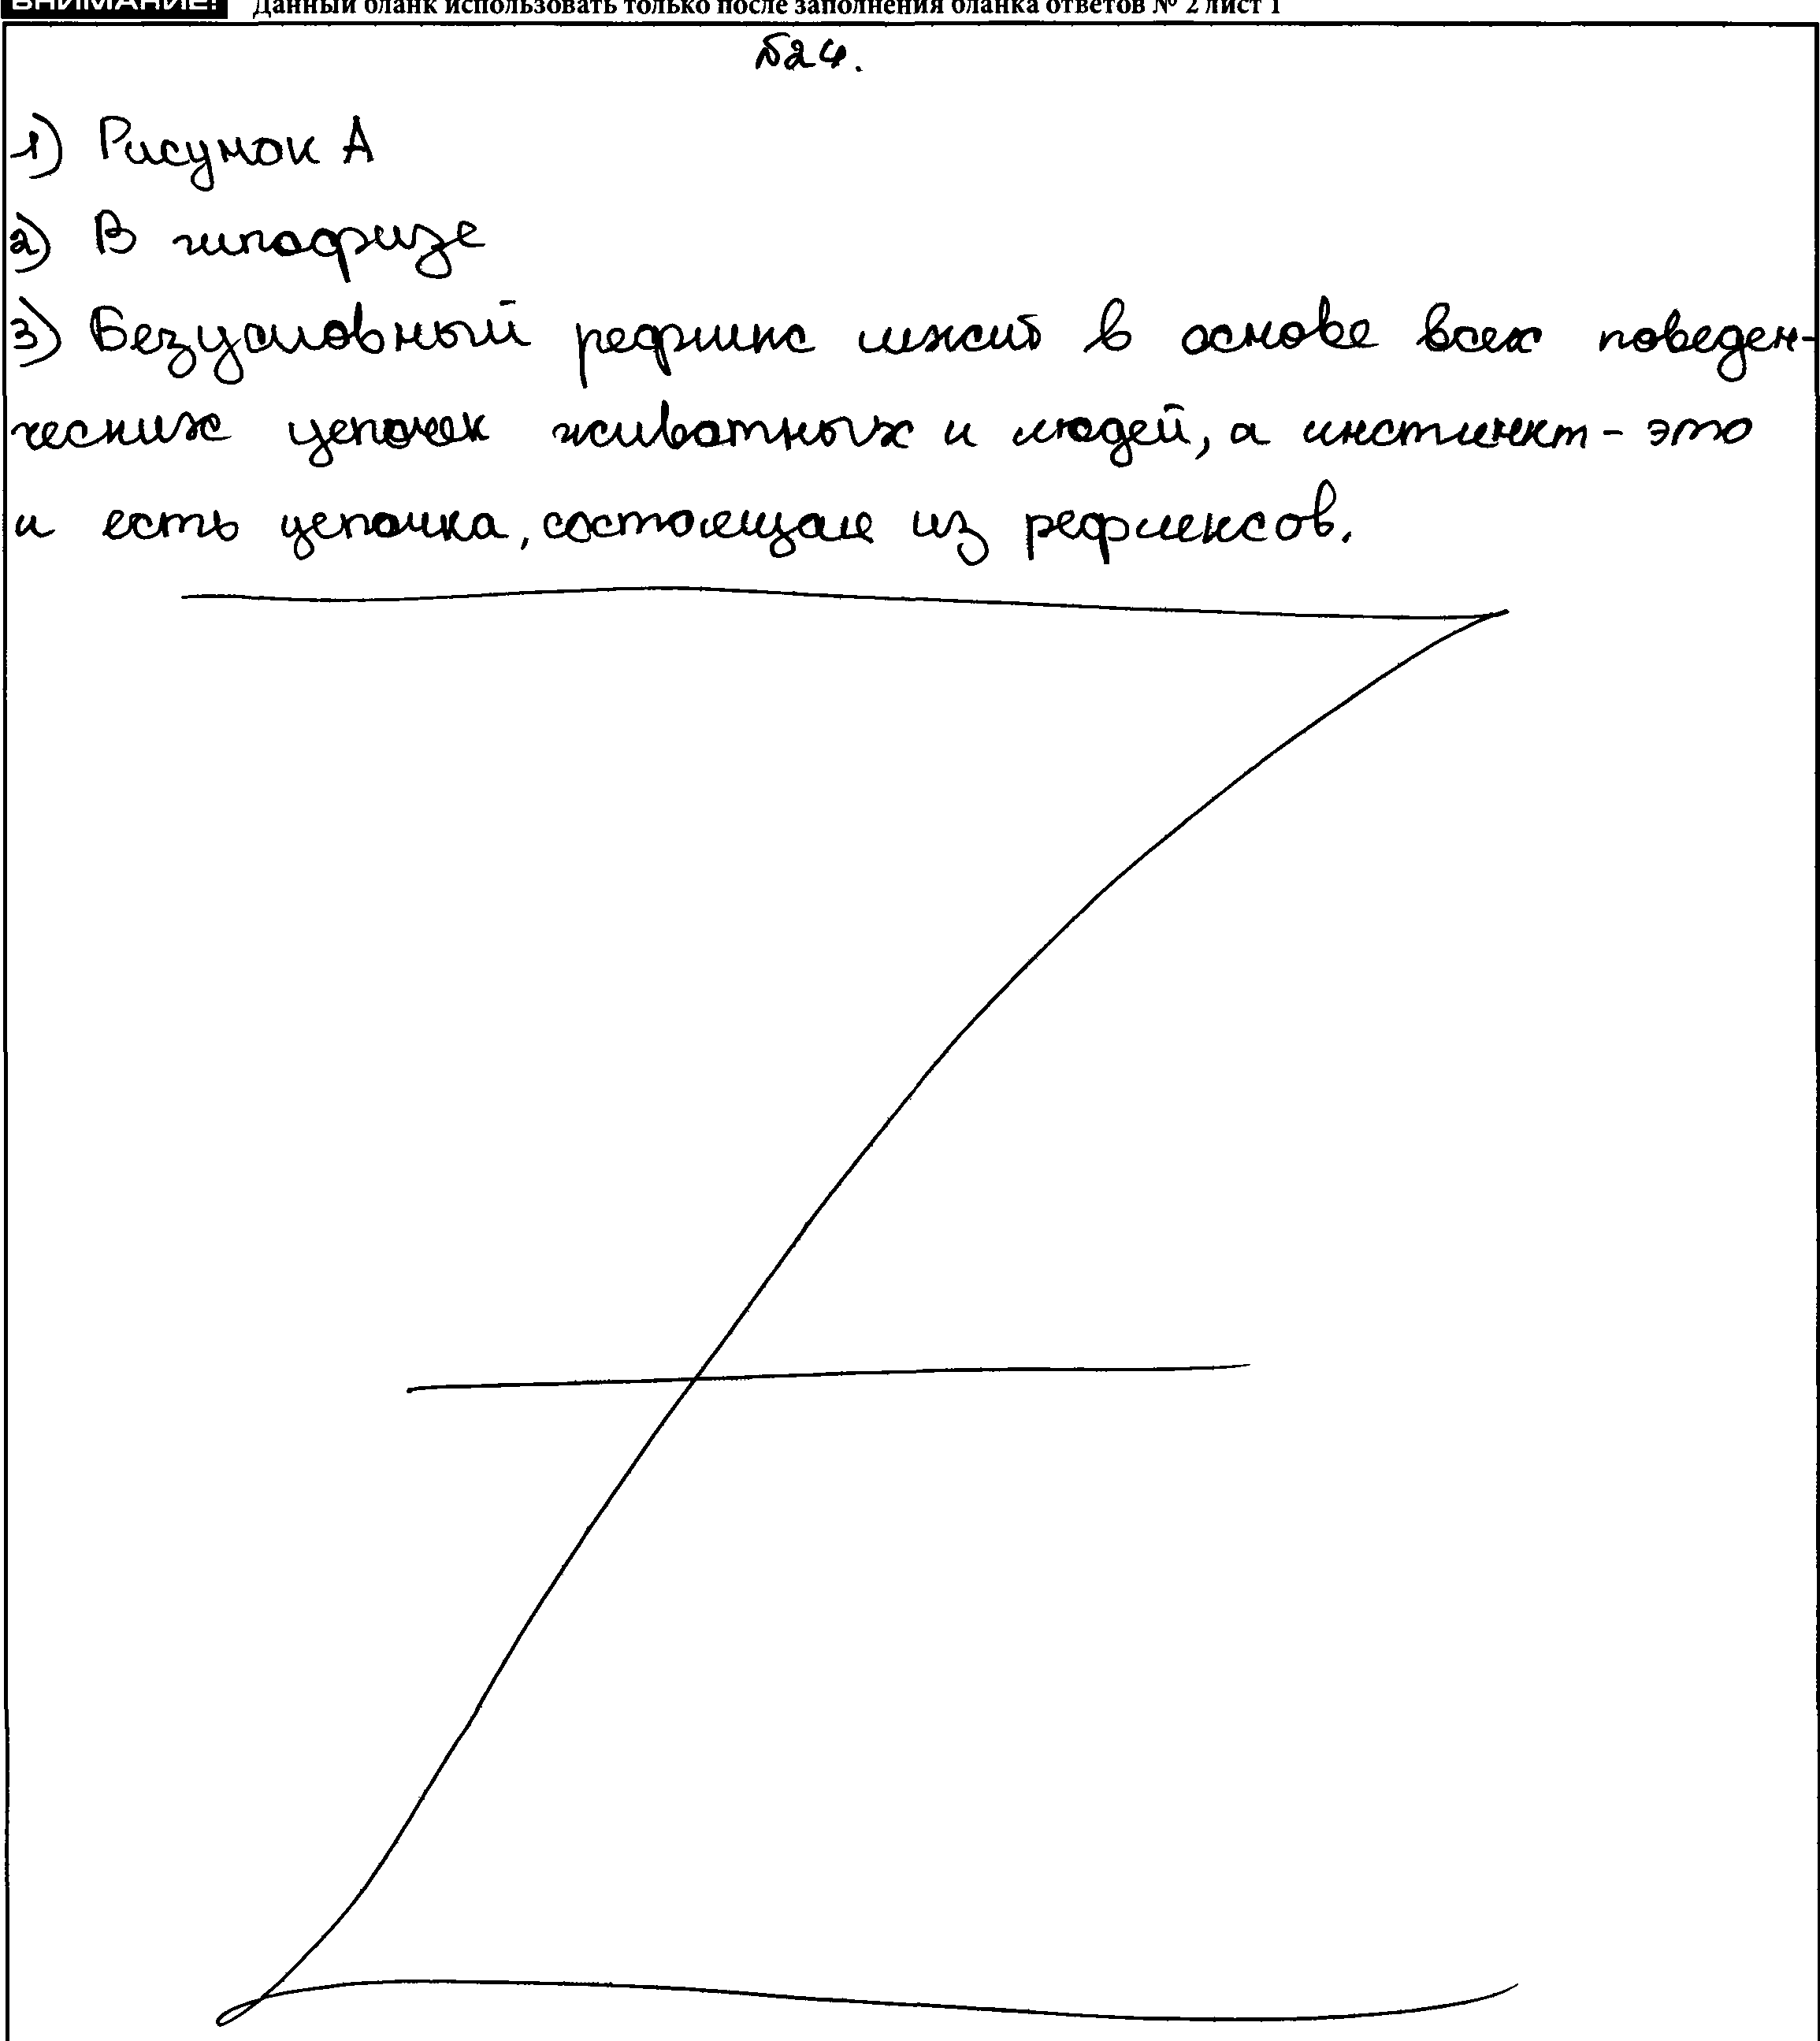 ВНИМАНИЕ! Данный бланк использовать только после заполнения бланка ответов № 2 лист 1
№24.
1) Рисунок А
2) В гипофизе
3) Безусловный рефлекс лежит в основе всех поведен-
ческих цепочек животных и людей, а инстинкт - это
и есть цепочка, состоящая из рефлексов.